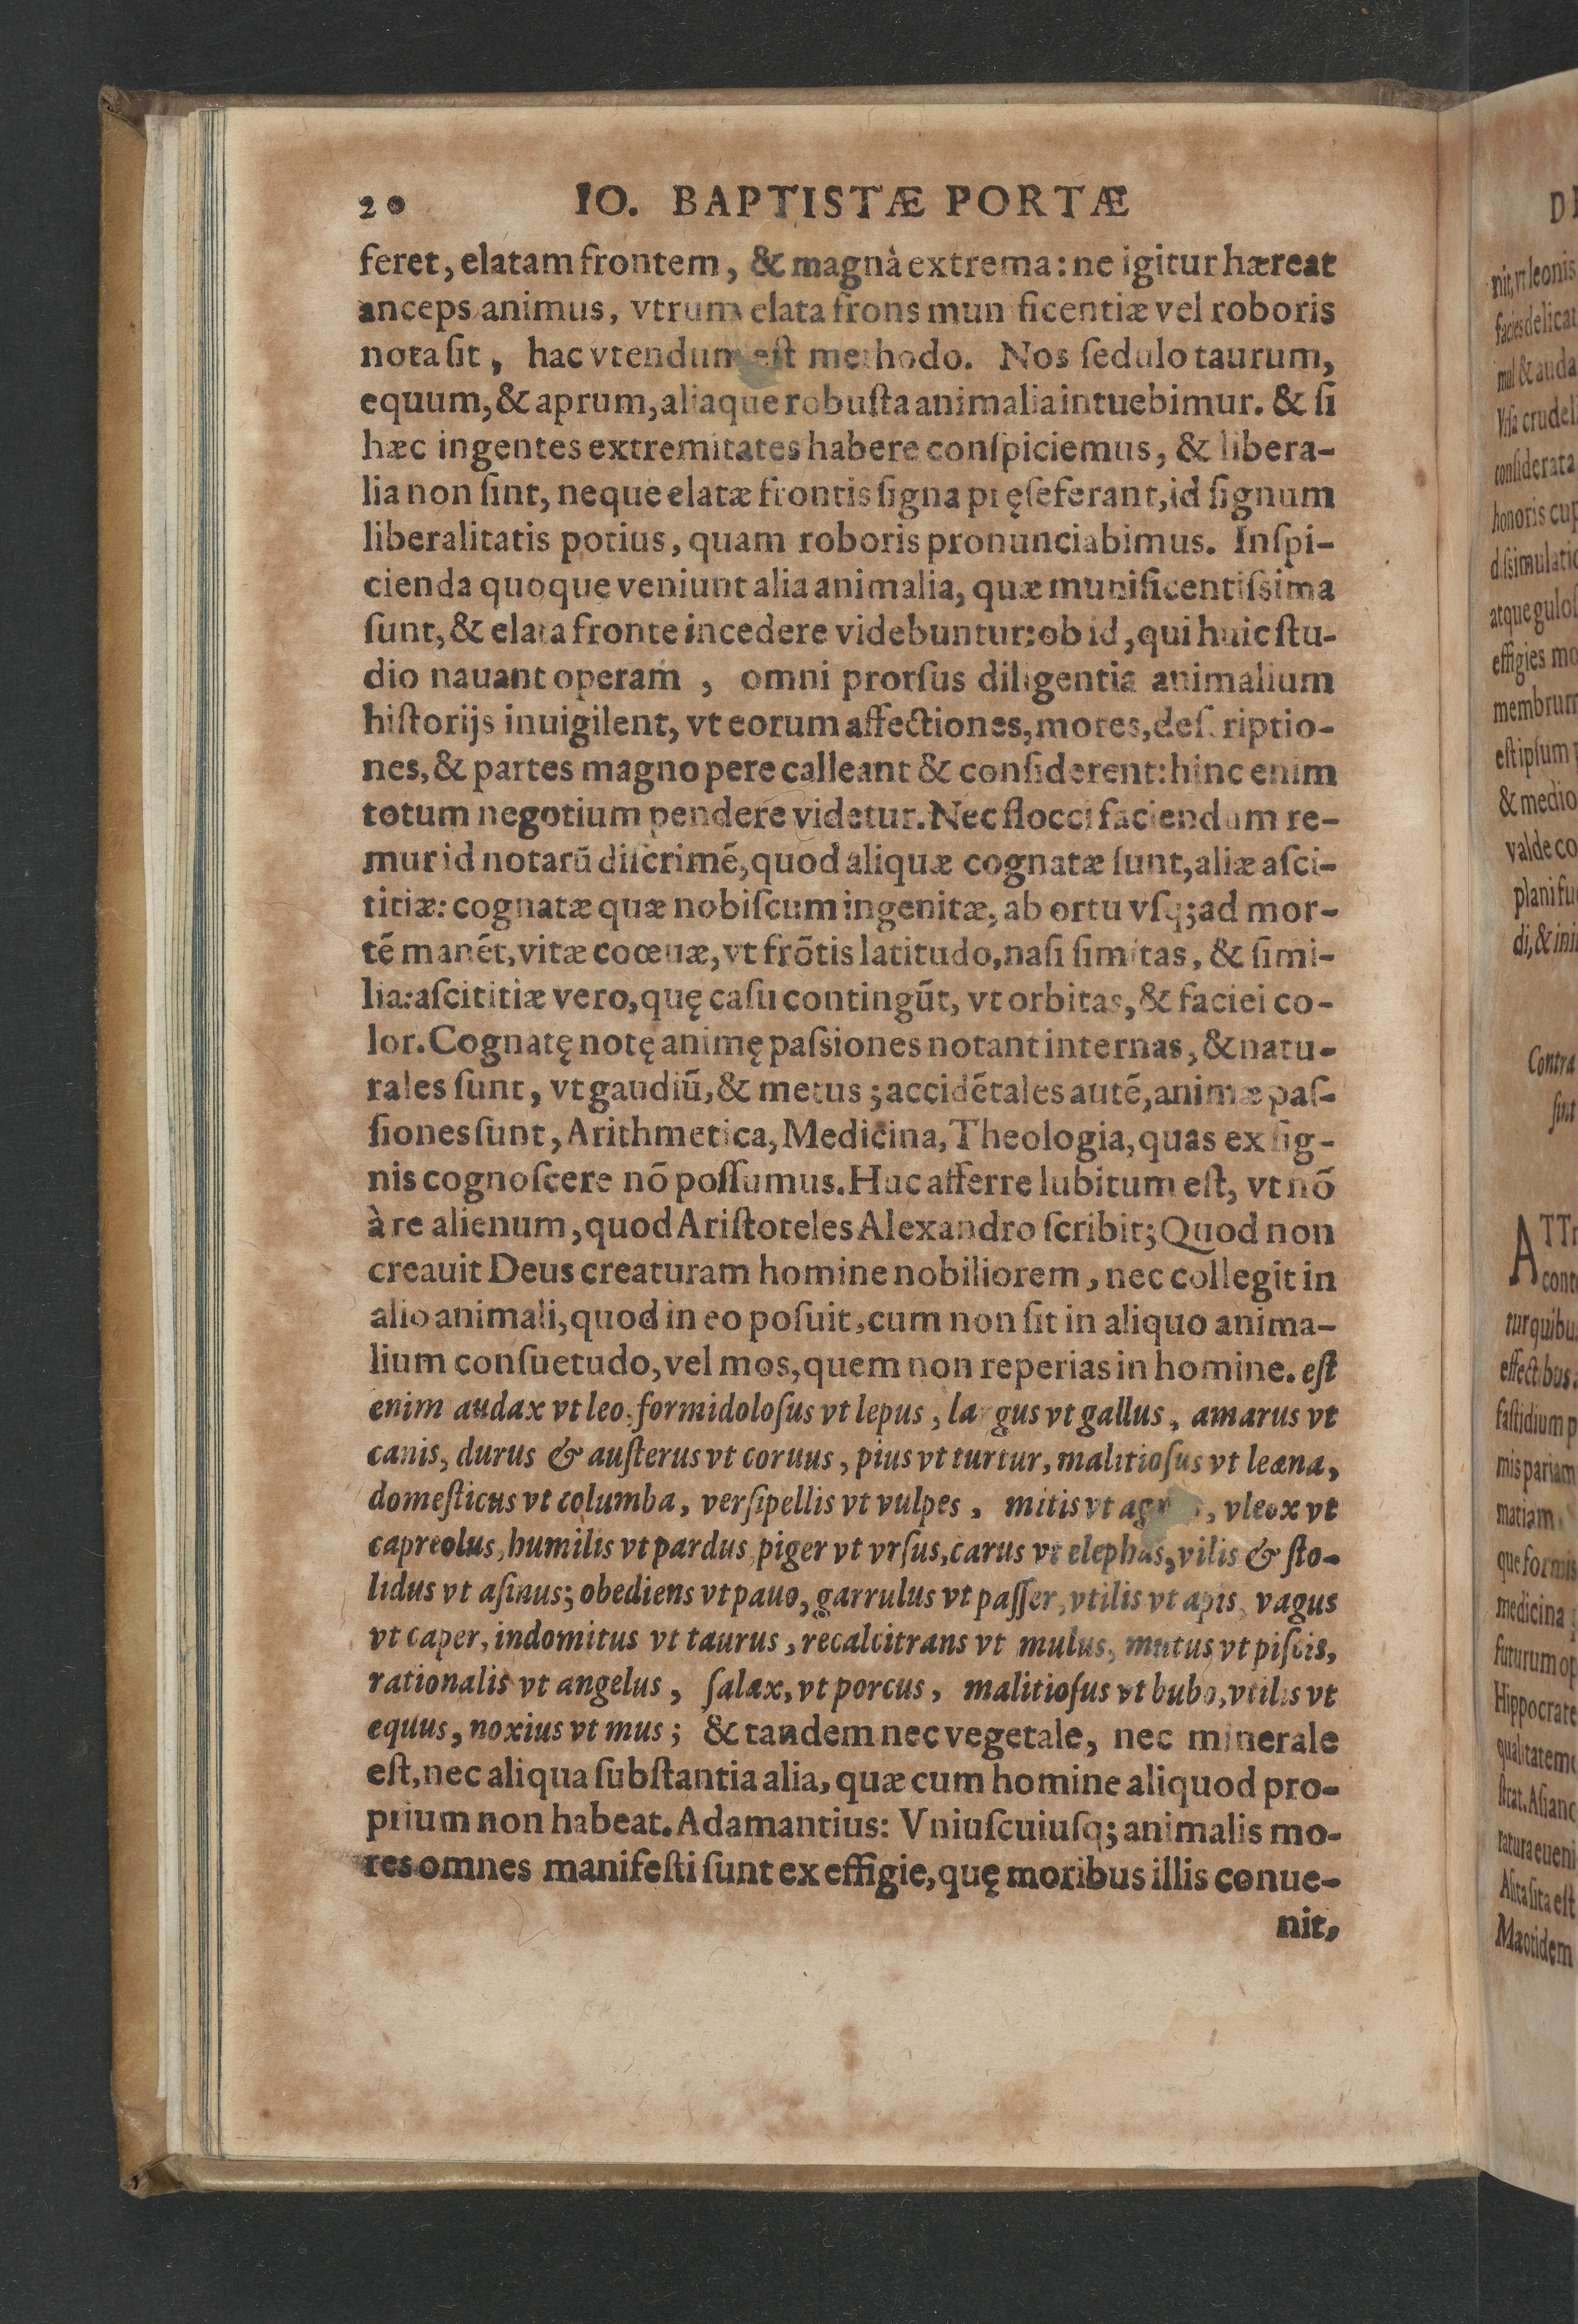 20 IO. BAPTISTÆ PORTÆ
feret, elatam frontem, & magnà extrema: ne igitur hæreat
anceps animus, vtrum elata frons mun ficentiæ vel roboris
nota ſit, hac vtendum eſt methodo. Nos ſedulo taurum,
equum, & aprum, aliaque robuſta animalia intuebimur. & ſi
hæc ingentes extremitates habere conſpiciemus, & libera-
lia non ſint, neque elatæ frontis ſigna pręſeferant, id ſignum
liberalitatis potius, quam roboris pronunciabimus. Inſpi-
cienda quoque veniunt alia animalia, quæ munificentiſsima
ſunt, & elata fronte incedere videbuntur: ob id, qui huic ſtu-
dio nauant operam, omni prorſus diligentia animalium
hiſtorijs inuigilent, vt eorum affectiones, mores, deſcriptio-
nes, & partes magno pere calleant & conſiderent: hinc enim
totum negotium pendere videtur. Nec flocci faciendum re-
mur id notarū diſcrimē, quod aliquæ cognatæ ſunt, aliæ aſci-
titiæ: cognatæ quæ nobiſcum ingenitæ, ab ortu vſq; ad mor-
tē manēt, vitæ coœuæ, vt frōtis latitudo, naſi ſimitas, & ſimi-
lia: aſcititiæ vero, quę caſu contingūt, vt orbitas, & faciei co-
lor. Cognatę notę animę paſsiones notant internas, & natu-
rales ſunt, vt gaudiū, & metus; accidētales autē, animæ paſ-
ſiones ſunt, Arithmetica, Medicina, Theologia, quas ex ſig-
nis cognoſcere nō poſſumus. Huc afferre lubitum eſt, vt nō
à re alienum, quod Ariſtoteles Alexandro ſcribit; Quod non
creauit Deus creaturam homine nobiliorem, nec collegit in
alio animali, quod in eo poſuit, cum non ſit in aliquo anima-
lium conſuetudo, vel mos, quem non reperias in homine. eſt
enim audax vt leo, formidoloſus vt lepus, largus vt gallus, amarus vt
canis, durus & auſterus vt coruus, pius vt turtur, malitioſus vt leæna,
domeſticus vt columba, verſipellis vt vulpes, mitis vt agnus, vleox vt
capreolus, humilis vt pardus, piger vt vrſus, carus vt elephas, vilis & ſto-
lidus vt aſinus; obediens vt pauo, garrulus vt paſſer, vtilis vt apis, vagus
vt caper, indomitus vt taurus, recalcitrans vt mulus, mutus vt piſcis,
rationalis vt angelus, ſalax, vt porcus, malitioſus vt bubo, vtilis vt
equus, noxius vt mus; & tandem nec vegetale, nec minerale
eſt, nec aliqua ſubſtantia alia, quæ cum homine aliquod pro-
prium non habeat. Adamantius: Vniuſcuiuſq; animalis mo-
res omnes manifeſti ſunt ex effigie, quę moribus illis conue-
nit,
nit, vt leonis
facies delicat
mul & auda
Vrſa crudeli
conſiderata
honoris cup
diſsimulatio
atque guloſ
effigies mo
membrum
eſt ipſum
& medio
valde co
plani fu
di, & ini
Contra
ſint
ATTr
cont
tur quibu
effectibus.
faſtidium p
mis pariam
matiam
que formis
medicina
futurum op
Hippocrate
qualitatem
ſtrat. Aſian
ratura eueni
Aſita ſita eſt
Mæotidem